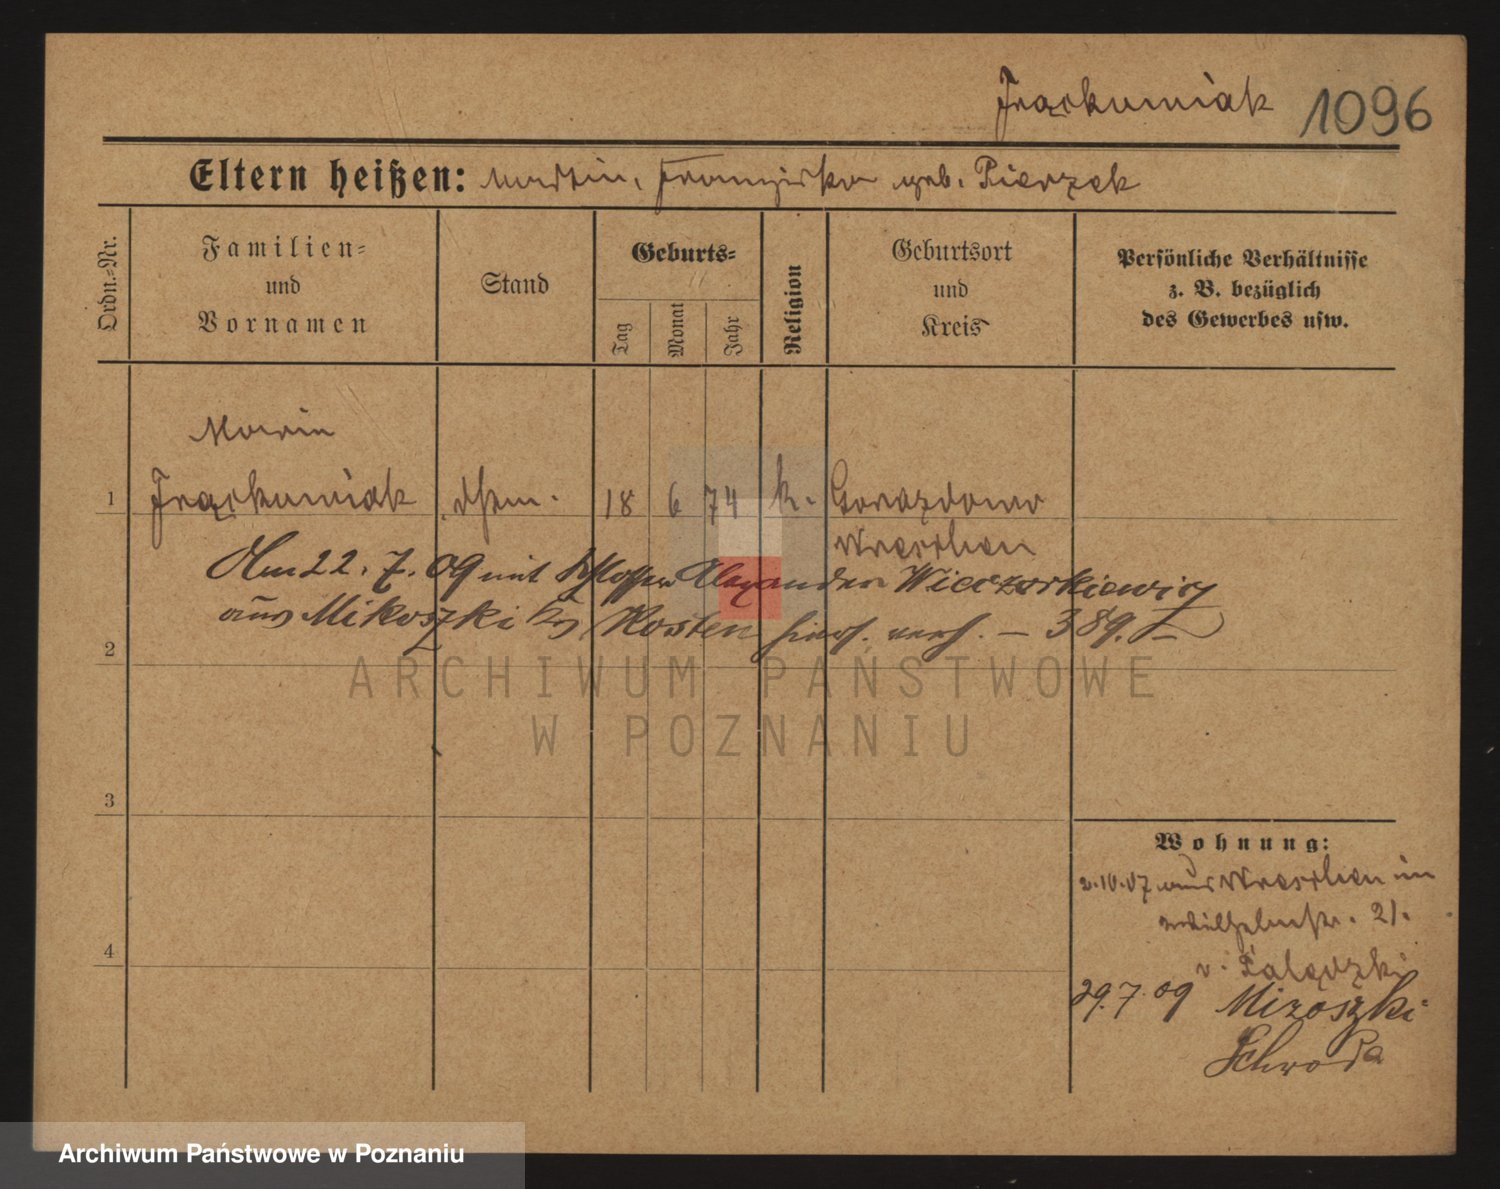 Frąckowiak 1096
Eltern heißen: Martin, Franziska geb. Pierzek
Ordn.-Nr.
Familien-
und
Vornamen
Stand
Geburts-
Tag
Monat
Jahr
Religion
Geburtsort
und
Kreis
Persönliche Verhältnisse
z. B. bezüglich
des Gewerbes usw.
Maria
1 Frąckowiak 18 6 74 k. Gorazdowo
Wreschen
Am 22. 7. 09 mit Schlosser Alexander
aus Mikoszki Kr. Kosten hiers. verh. – 389.
2
3
4
Wohnung:
2.10.07 aus Wreschen in
Wilhelmstr. 21.
v.
29.7.09
Schroda
ARCHIWUM PAŃSTWOWE
W POZNANIU
Archiwum Państwowe w Poznaniu